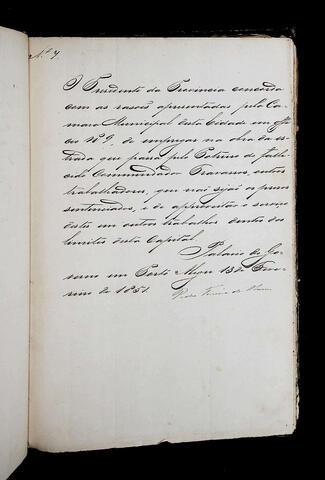 N.º 7.
O Presidente da Provincia concorda
com as rasoês apresentadas pela Ca-
mara Municipal desta Cidade em offi-
cio Nº 9, de empregar na obra da es-
trada que passa pelo Potreiro do falle-
cido Commendador Travassos, outros
trabalhadores, que não sejaõ os presos
sentenciados, e de aproveitar o serviço
destes em outros trabalhos dentro dos
limites desta Capital.
Palacio do Go-
verno em Porto Alegre 13 de Feve-
reiro de 1851.
Pedro Ferreira de